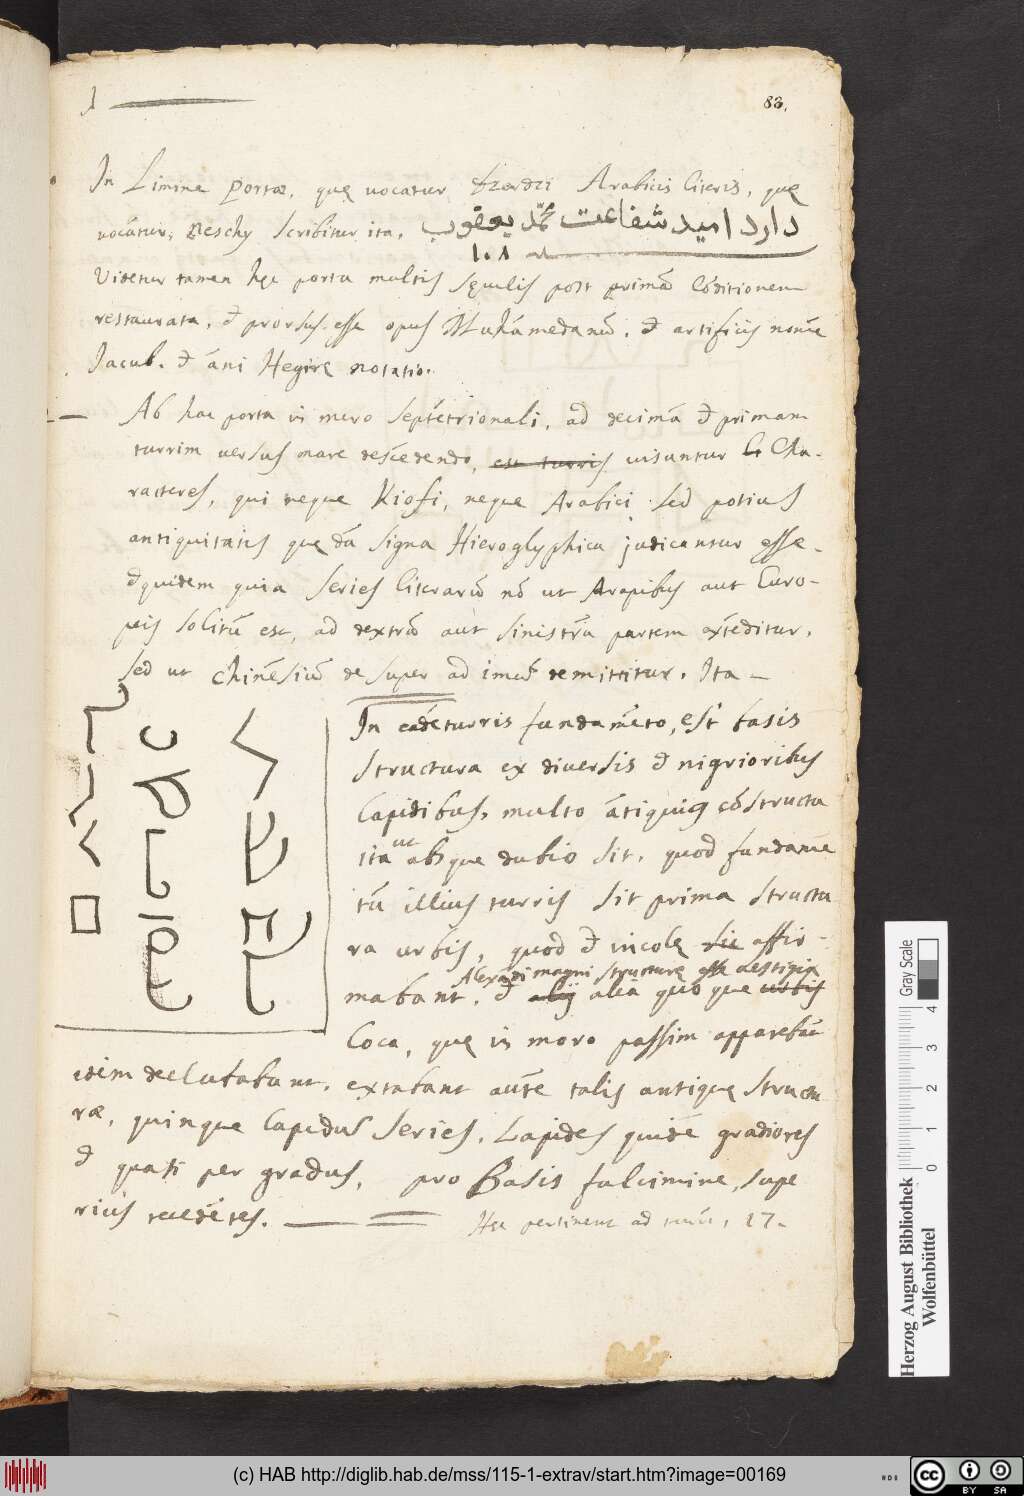 83.
In Limine Portæ, quę uocatur Arabicis literis, quę
uocātur, Neschy Scribitur ita,
دارد امید شفاعت محمّد یعقوب
١٠٨
Videtur tamen hęc porta multis sęculis post primā Cōditionem
restaurata, & prorsus esse opus Muhāmedanū, & artificis nomē
Iacub. & āni Hegirę notatio.
Ab hac porta in muro Septētrionali, ad decimā & primam
turrim uersus mare descēdendo, est turris uisuntur Cha-
racteres, qui neque Kiofi, neque Arabici, sed potius
antiquitatis quędā signa Hieroglyphica judicantur esse
& quidem quia Series literarū nō ut Arapibus aut Euro-
peis solitū est, ad dextrā aut sinistrā partem extēditur,
sed ut Chinēsiū de super ad imū demittitur. Ita
In eādē turris fundamēto, est basis
Structura ex diuersis & nigrioribus
lapidibus, multo ātiquius cōstructa
ita ut absque dubio sit, quod fundamē
tū illius turris sit prima Structu
ra urbis, quod & incolę affir-
Alexādri magni structurę esse uestigia
mabant. & alia quoque urbis
Loca, quę in muro passim apparebāt
idem declarabant. extabant autē talis antiquę Structu
ræ, quinque lapidus Series, Lapides quidē gradiores
& quasi per gradus, pro Basis fulcimine, supe
rius recedētes.
Hęc pertinent ad num, 17.
Gray Scale
0 1 2 3 4
Herzog August Bibliothek
Wolfenbüttel
(c) HAB http://diglib.hab.de/mss/115-1-extrav/start.htm?image=00169
cc BY SA